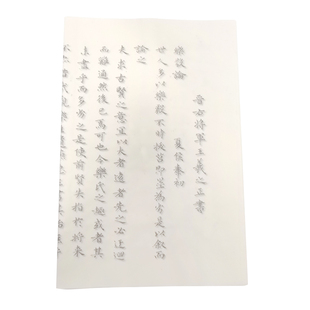 晉右將軍王羲之正書
樂毅論
夏侯泰初
世人多以樂毅不時拔營即墨為劣是以叙而
論之
夫求古賢之意宜以大者遠者先之必迂迴
而難通然後已焉可也今樂氏之趣或者其
未盡乎而多劣之是使前賢失指於將來
不亦惜哉觀樂生遺燕惠王書其